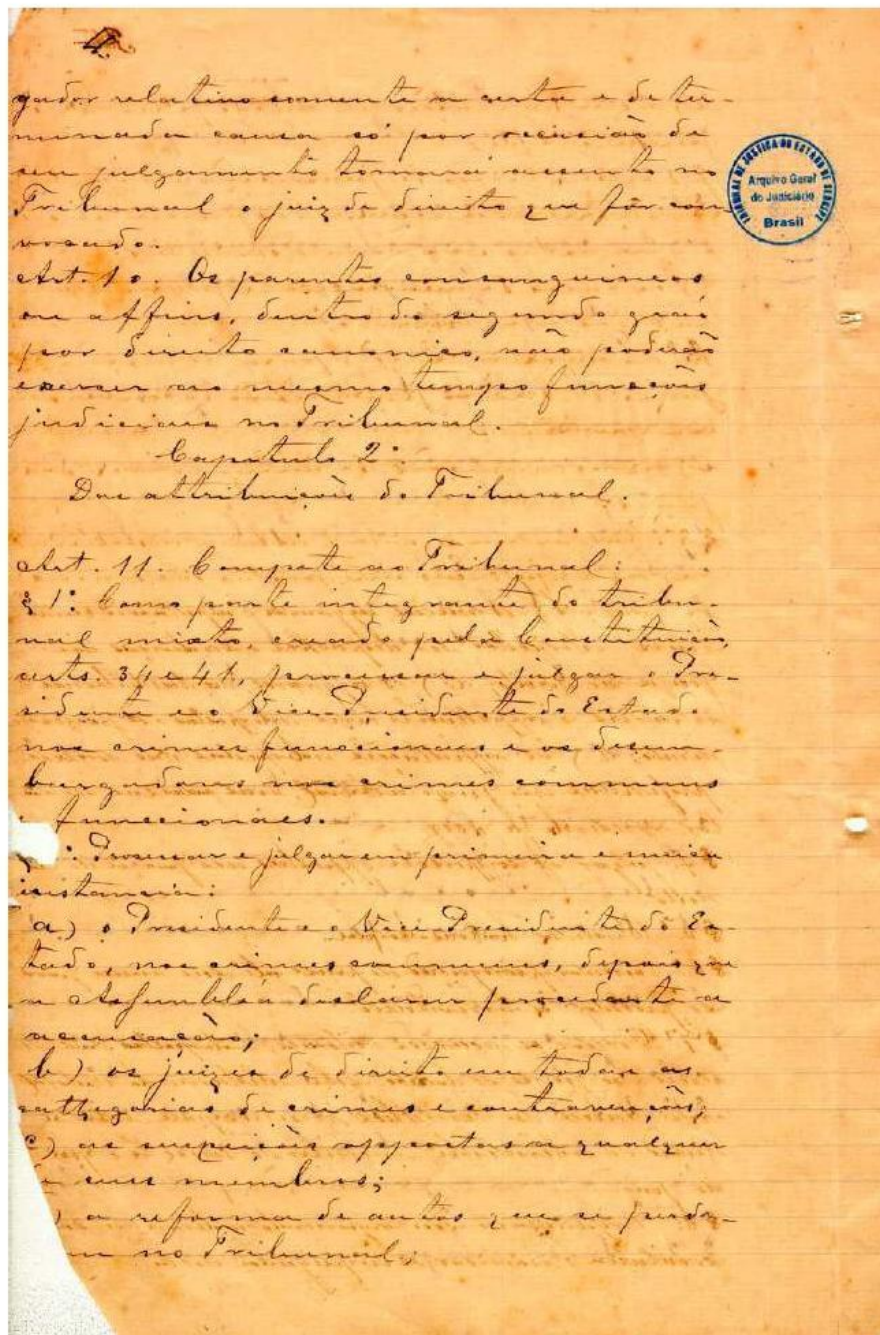 4.
gador relativo somente a certa e deter-
minada causa só por occasião de
seu julgamento tomará assento no
Tribunal o juiz de direito que fôr con
vocado.
Art. 10. Os parentes consanguineos
ou affins, dentro do segundo gráo
por direito canonico, não poderão
exercer ao mesmo tempo funcções
judiciaes no Tribunal.
Capitulo 2º
Das attribuições do Tribunal.
Art. 11. Compete ao Tribunal:
§ 1º Como parte integrante do tribu-
nal mixto, creado pela Constituição,
arts. 34 e 41, processar e julgar o Pre-
sidente e o Vice-Presidente do Estado
nos crimes funccionaes e os desem-
bargadores nos crimes communs
e funccionáes.
º Processar e julgar em primeira e unica
instancia:
a) o Presidente e o Vice-Presidente do Es-
tado, nos crimes communs, depois que
a Assembléa declarar procedente a
accusação;
b) os juizes de direito em todas as
cathegorias de crimes e contravenções;
c) as suspeições oppostas a qualquer
de seus membros;
) a reforma de autos que se perde-
m no Tribunal;
TRIBUNAL DE JUSTIÇA DO ESTADO DE SERGIPE
Arquivo Geral
do Judiciário
Brasil